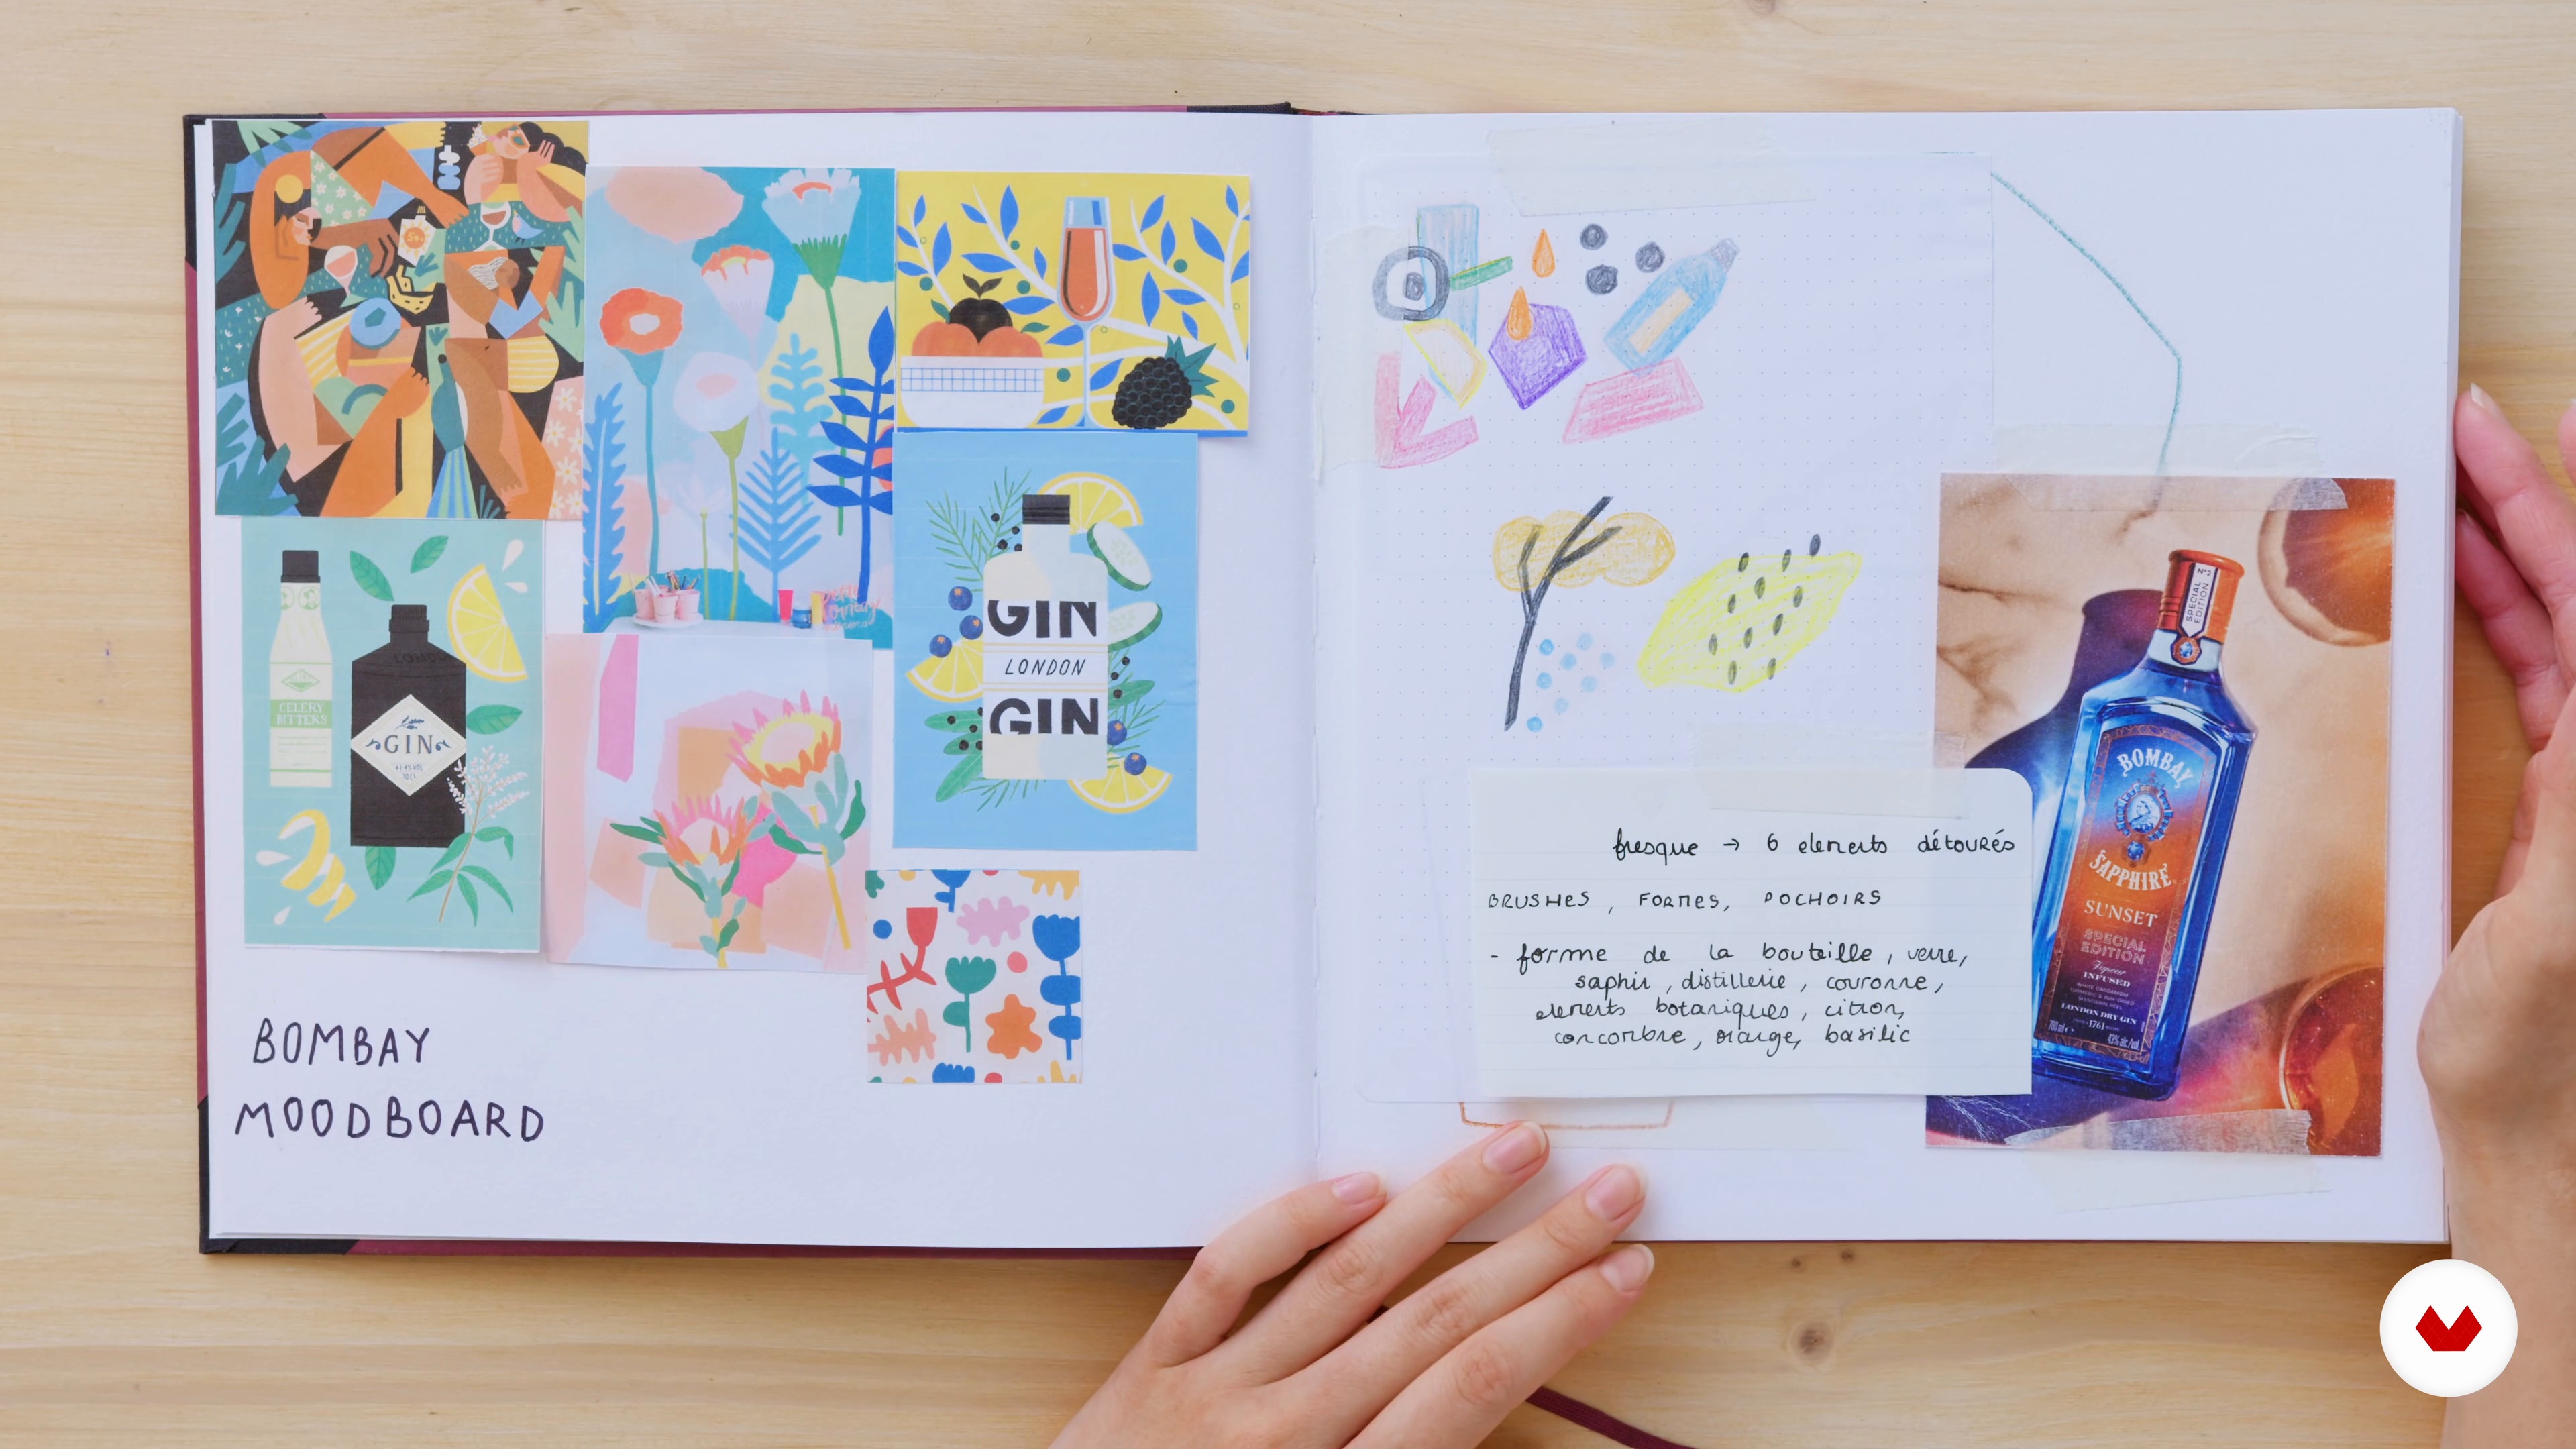 CELERY
BITTERS
GIN
GIN
LONDON
GIN
BOMBAY
MOODBOARD
fresque → 6 elements détourés
BRUSHES, FORMES, POCHOIRS
- forme de la bouteille, verre,
saphir, distillerie, couronne,
elements botaniques, citron,
concombre, orange, basilic
Nº1
SPECIAL
EDITION
BOMBAY
SAPPHIRE
SUNSET
SPECIAL
EDITION
INFUSED
LONDON DRY GIN
1761